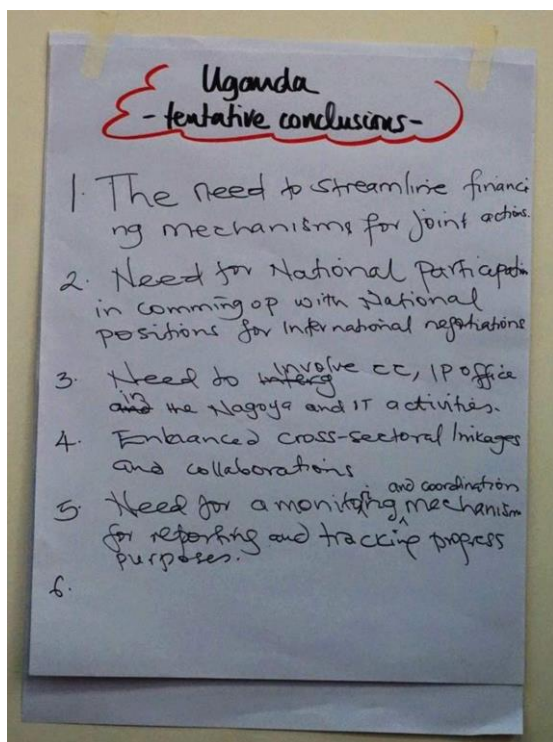 Uganda
- tentative conclusions -
1. The need to streamline financi
ng mechanisms for joint actions.
2. Need for National Particapation
in comming op with National
positions for International negotiations
3. Need to involve CC, IP office
in the Nagoya and IT activities.
4. Enhanced cross-sectoral linkages
and collaborations
and coordination
5. Need for a monitoring mechanism
for reporting and tracking progress
purposes.
6.